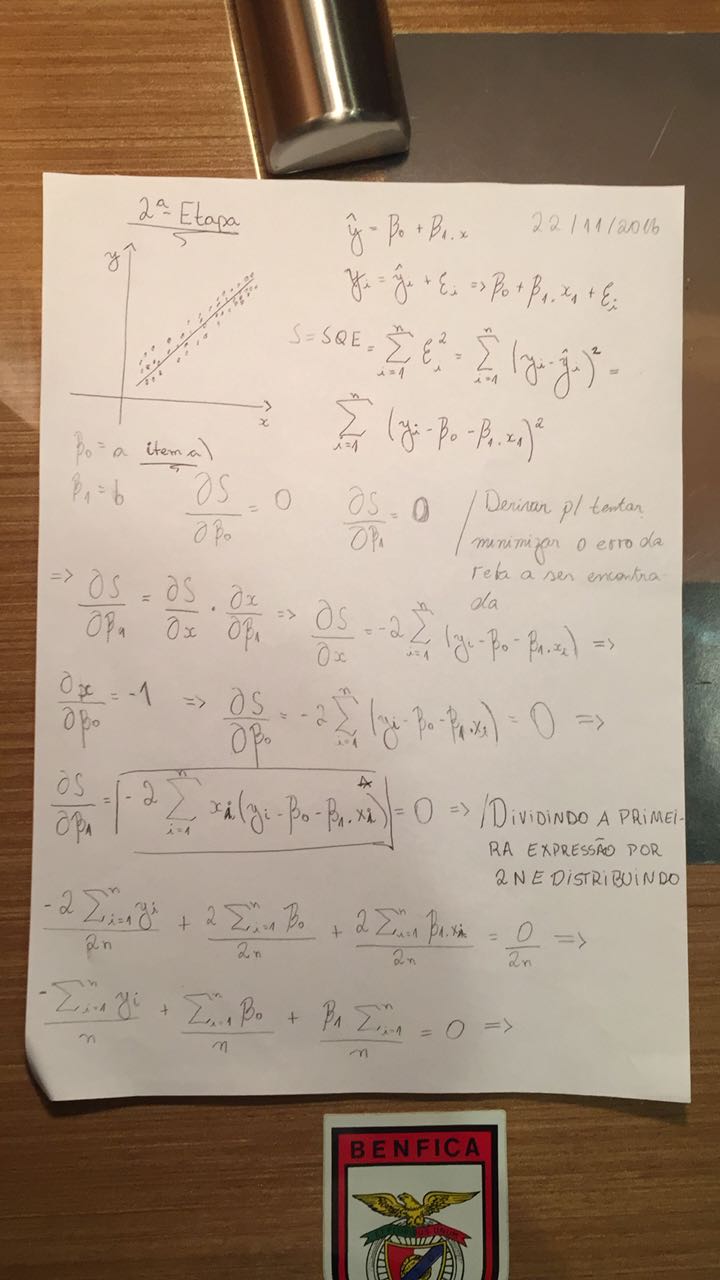 2ª Etapa
22/11/2016
ŷ = β₀ + β₁.x
y
x
yᵢ = ŷᵢ + εᵢ => β₀ + β₁.x₁ + εᵢ
S = SQE = ∑ᵢ₌₁ⁿ εᵢ² = ∑ᵢ₌₁ⁿ (yᵢ - ŷᵢ)² =
∑ᵢ₌₁ⁿ (yᵢ - β₀ - β₁.x₁)²
β₀ = a item a)
β₁ = b
∂S/∂β₀ = 0
∂S/∂β₁ = 0
/ Derivar p/ tentar
minimizar o erro da
reta a ser encontra-
da
=> ∂S/∂β₁ = ∂S/∂x . ∂x/∂β₁ => ∂S/∂x = -2 ∑ᵢ₌₁ⁿ (yᵢ - β₀ - β₁.xᵢ) =>
∂x/∂β₀ = -1 => ∂S/∂β₀ = -2 ∑ᵢ₌₁ⁿ (yᵢ - β₀ - β₁.xᵢ) = 0 =>
∂S/∂β₁ = -2 ∑ᵢ₌₁ⁿ xᵢ(yᵢ - β₀ - β₁.xᵢ) = 0 => / DIVIDINDO A PRIMEI-
RA EXPRESSÃO POR
2N E DISTRIBUINDO
-2 ∑ᵢ₌₁ⁿ yᵢ/2n + 2 ∑ᵢ₌₁ⁿ β₀/2n + 2 ∑ᵢ₌₁ⁿ β₁.xᵢ/2n = 0/2n =>
-∑ᵢ₌₁ⁿ yᵢ/n + ∑ᵢ₌₁ⁿ β₀/n + β₁ ∑ᵢ₌₁ⁿ/n = 0 =>
BENFICA